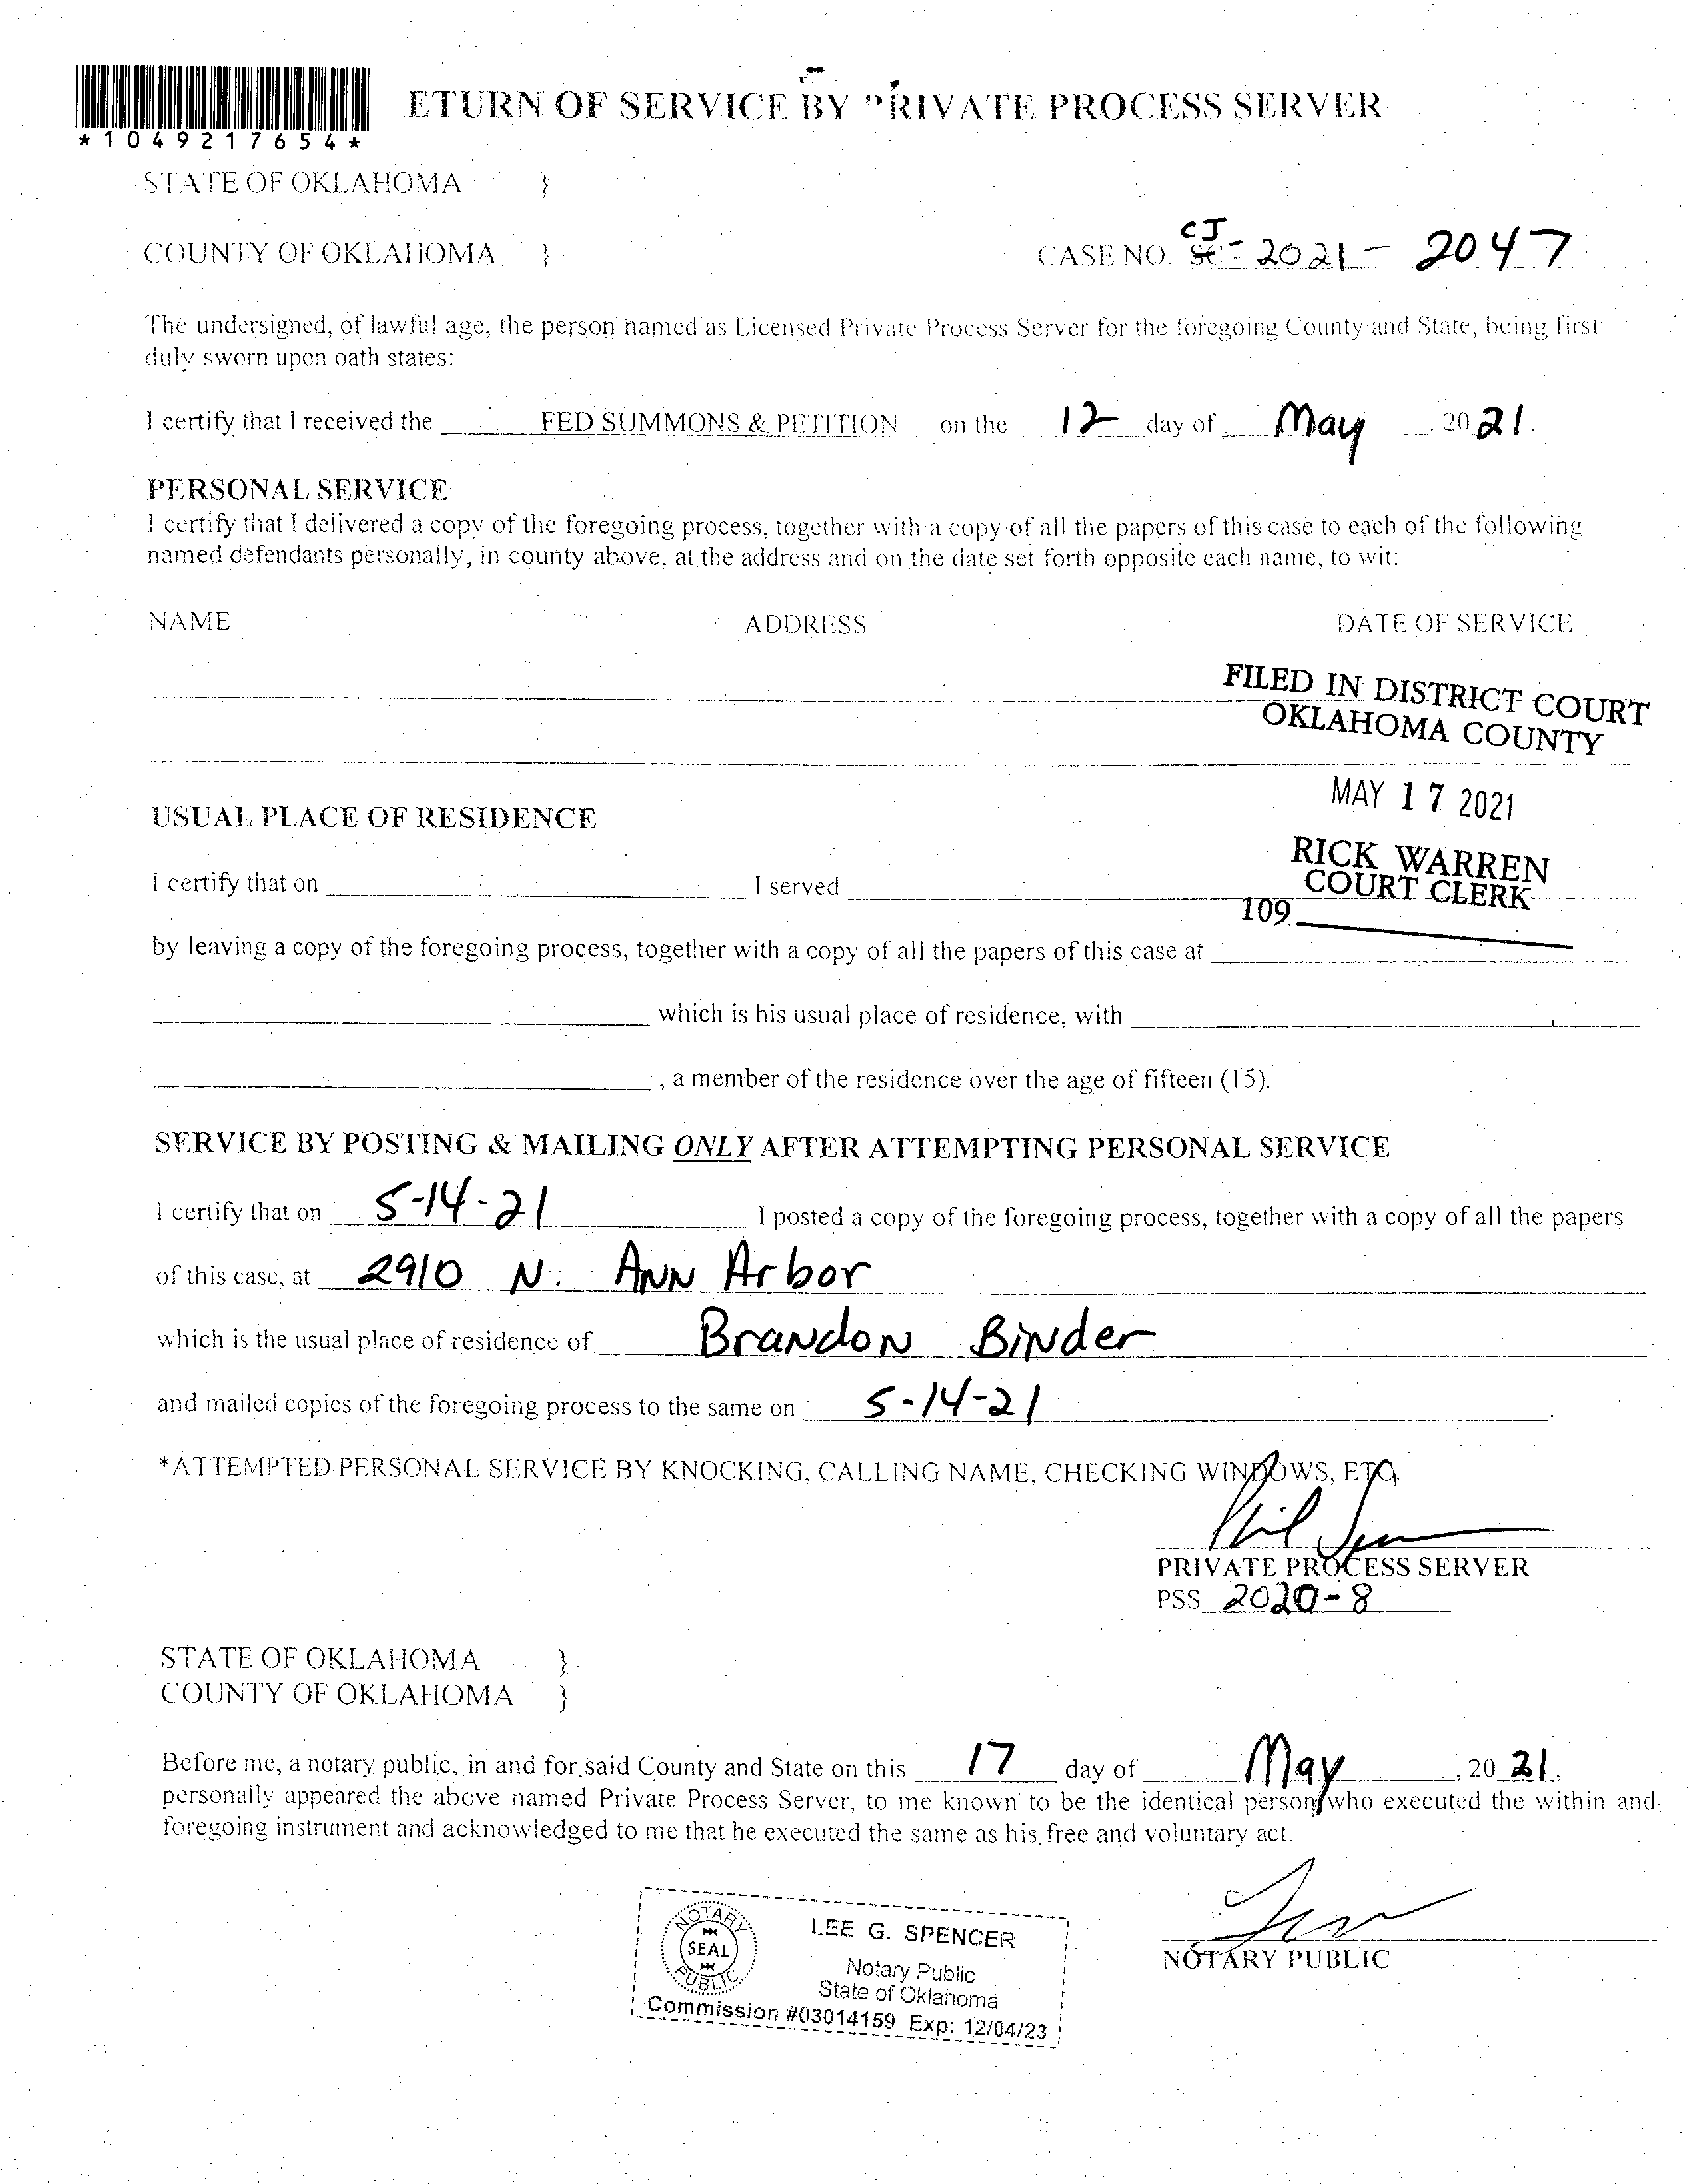 ETURN OF SERVICE BY PRIVATE PROCESS SERVER
*1049217654*
STATE OF OKLAHOMA }
CJ
COUNTY OF OKLAHOMA } CASE NO. SC- 2021 - 2047
The undersigned, of lawful age, the person named as Licensed Private Process Server for the foregoing County and State, being first
duly sworn upon oath states:
I certify that I received the FED SUMMONS & PETITION on the 12 day of May 2021.
PERSONAL SERVICE
I certify that I delivered a copy of the foregoing process, together with a copy of all the papers of this case to each of the following
named defendants personally, in county above, at the address and on the date set forth opposite each name, to wit:
NAME ADDRESS DATE OF SERVICE
FILED IN DISTRICT COURT
OKLAHOMA COUNTY
MAY 17 2021
USUAL PLACE OF RESIDENCE
RICK WARREN
COURT CLERK
I certify that on I served
109
by leaving a copy of the foregoing process, together with a copy of all the papers of this case at
which is his usual place of residence, with
, a member of the residence over the age of fifteen (15).
SERVICE BY POSTING & MAILING ONLY AFTER ATTEMPTING PERSONAL SERVICE
I certify that on 5-14-21 I posted a copy of the foregoing process, together with a copy of all the papers
of this case, at 2910 N. ANN Arbor
which is the usual place of residence of BraNdoN BiNder
and mailed copies of the foregoing process to the same on 5-14-21
*ATTEMPTED PERSONAL SERVICE BY KNOCKING, CALLING NAME, CHECKING WINDOWS, ETC.
PRIVATE PROCESS SERVER
PSS 2020-8
STATE OF OKLAHOMA }
COUNTY OF OKLAHOMA }
Before me, a notary public, in and for said County and State on this 17 day of May, 20 21,
personally appeared the above named Private Process Server, to me known to be the identical person who executed the within and
foregoing instrument and acknowledged to me that he executed the same as his free and voluntary act.
NOTARY PUBLIC
NOTARY
SEAL
PUBLIC
LEE G. SPENCER
Notary Public
State of Oklahoma
Commission #03014159 Exp: 12/04/23